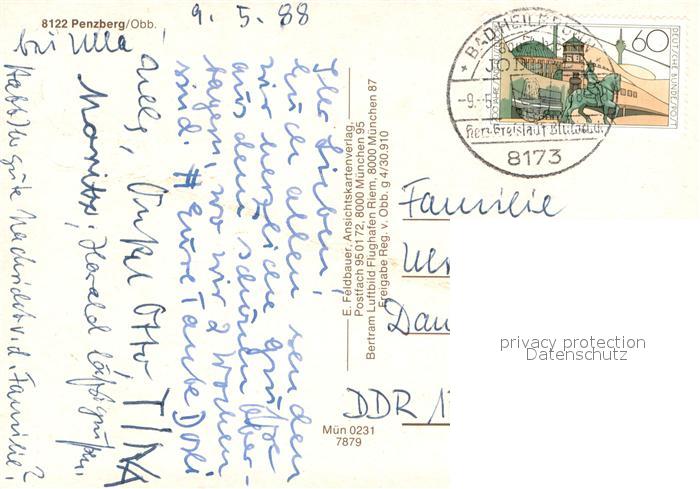 8122 Penzberg/Obb.
9. 5. 88
Ihr Lieben,
Euch allen senden
wir herzliche Grüße
aus dem schönen Ober-
bayern, wo wir 2 Wochen
sind. Eure Tante Dori
Onkel Otto TINA
Moritz, Harald läßt grüßen.
Habt Ihr gute Nachricht v. d. Familie?
bei Ulla
E. Feldbauer, Ansichtskartenverlag
Postfach 950172, 8000 München 95
Bertram Luftbild Flughafen Riem, 8000 München 87
Freigabe Reg. v. Obb. g 4/30.910
Mün 0231
7879
BAD HEILBRUNN
JOD
-9.-5.
Herz Kreislauf Blutdruck
8173
60
DEUTSCHE BUNDESPOST
Familie
DDR
privacy protection
Datenschutz